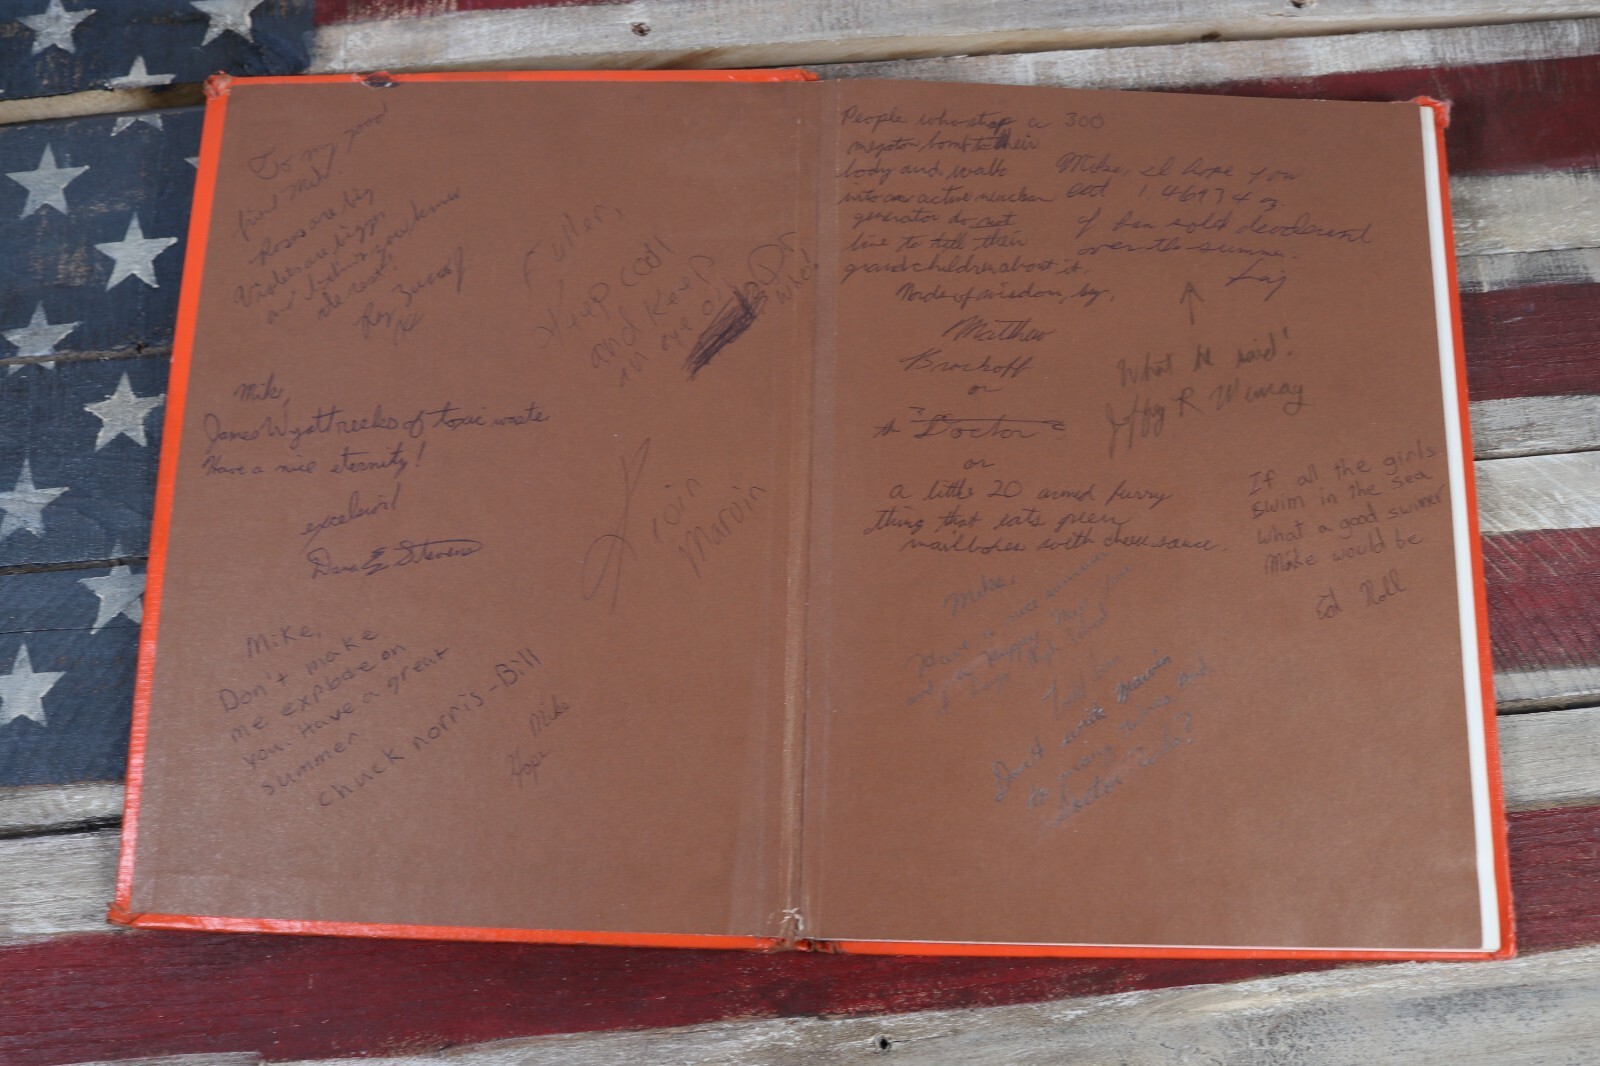 To my good
friend Mike.
Roses are big
Violets are bigger
and
the rest!
Roy
Fuller,
Keep cool
and keep
an eye on Dr
Who!
Mike,
James Wyatt reeks of toxic waste
Have a nice eternity!
excelsior!
Dana E Stevens
Marvin
Mike,
Don't make
me explode on
you. Have a great
summer
chuck norris-Bill
Mike
Hope
People who strap a 300
megaton bomb to their
body and walk
into an active nuclear
generator do not
live to tell their
grandchildren about it.
Words of wisdom, by,
Matthew
Brockoff
or
the Doctor
or
a little 20 armed furry
thing that eats green
mailboxes with cheese sauce.
Mike, I hope you
eat 146934 oz.
of solid deodorant
over the summer.
What he said!
Jeffry R Murray
If all the girls
swim in the sea
what a good swimer
Mike would be
Ed Noll
Mike,
Have a nice summer
and a happy
Don't Marvin
to many times
Doctor